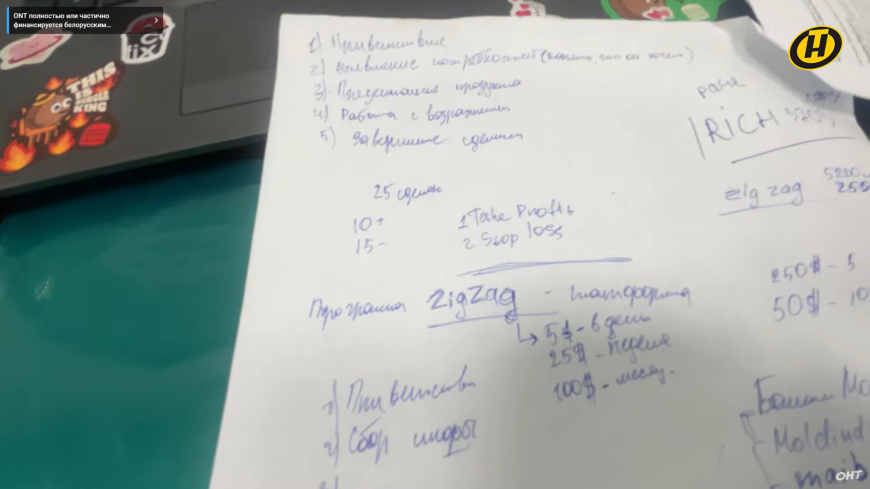 ОНТ полностью или частично
финансируется белорусским...
THIS
IS
BURGER
KING
fix
1) Приветствие
2) Выявление потребностей (понять, что он хочет)
3) Презентация продукта
4) Работа с возражениями
5) Завершение сделки
RICH
zig zag
25 сделок
10+
15-
1 Take Profit
2 Stop loss
Программа ZigZag - платформа
5$ - в день
25$ - неделя
100$ - месяц.
250$ - 5
50$ - 10
1) Приветствие
2) Сбор инфы
3)
Moldind
maib
ОНТ